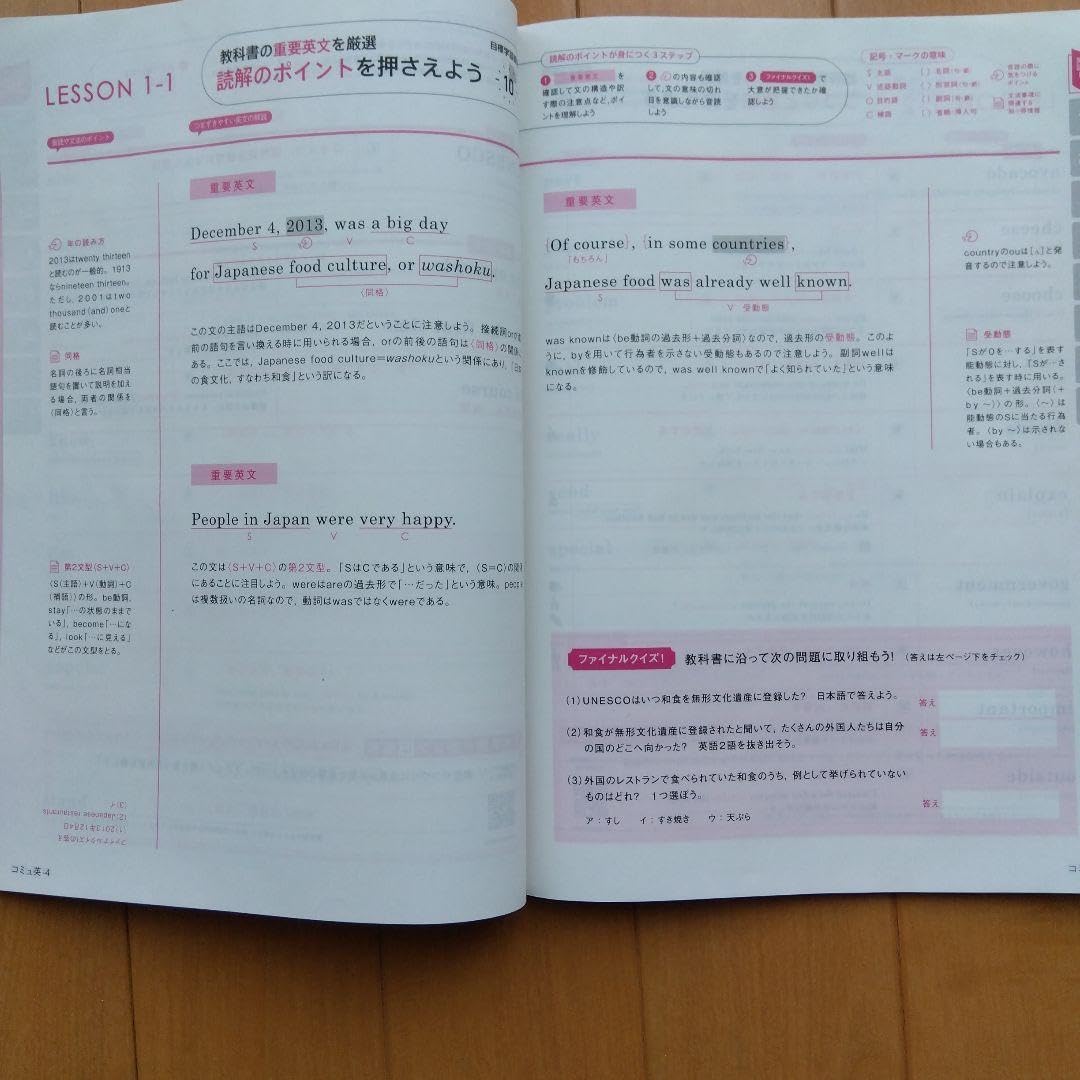 LESSON 1-1
教科書の重要英文を厳選
読解のポイントを押さえよう
音読や文法のポイント
つまずきやすい英文の解説
年の読み方
2013はtwenty thirteen
と読むのが一般的。1913
ならnineteen thirteen。
ただし，2001はtwo
thousand (and) oneと
読むことが多い。
同格
名詞の後ろに名詞相当
語句を置いて説明を加え
る場合，両者の関係を
〈同格〉と言う。
重要英文
December 4, 2013, was a big day
S V C
for Japanese food culture, or washoku.
〈同格〉
この文の主語はDecember 4, 2013だということに注意しよう。接続詞orが
前の語句を言い換える時に用いられる場合，orの前後の語句は〈同格〉の関係
ある。ここでは，Japanese food culture=washokuという関係にあり，「日本
の食文化，すなわち和食」という訳になる。
重要英文
People in Japan were very happy.
S V C
第2文型(S+V+C)
〈S(主語)+V(動詞)+C
(補語)〉の形。be動詞，
stay「…の状態のままで
いる」，become「…にな
る」，look「…に見える」
などがこの文型をとる。
この文は〈S+V+C〉の第2文型。「SはCである」という意味で，〈S=C〉の関係
にあることに注目しよう。wereはareの過去形で「…だった」という意味。peop
は複数扱いの名詞なので，動詞はwasではなくwereである。
ファイナルクイズ!の答え
(1) 2013年12月4日
(2) Japanese restaurants
(3) イ
コミュ英-4
読解のポイントが身につく3ステップ
1 重要英文 を
確認して文の構造や訳
す際の注意点など，ポイ
ントを理解しよう
2 の内容も確認
して，文の意味の切れ
目を意識しながら音読
しよう
3 ファイナルクイズ! で
大意が把握できたか確
認しよう
記号・マークの意味
S 主語
V 述語動詞
O 目的語
C 補語
重要英文
Of course, in some countries,
「もちろん」
Japanese food was already well known.
S
V 受動態
was knownは〈be動詞の過去形+過去分詞〉なので，過去形の受動態。このよ
うに，byを用いて行為者を示さない受動態もあるので注意しよう。副詞wellは
knownを修飾しているので，was well knownで「よく知られていた」という意味
になる。
countryのouは[ʌ]と発
音するので注意しよう。
受動態
「SがOを…する」を表す
能動態に対し，「Sが…さ
れる」を表す時に用いる。
〈be動詞+過去分詞(+
by ～)〉の形。〈～〉は
能動態のSに当たる行為
者。〈by ～〉は示されな
い場合もある。
ファイナルクイズ! 教科書に沿って次の問題に取り組もう! (答えは左ページ下をチェック)
(1) UNESCOはいつ和食を無形文化遺産に登録した? 日本語で答えよう。 答え
(2) 和食が無形文化遺産に登録されたと聞いて，たくさんの外国人たちは自分
の国のどこへ向かった? 英語2語を抜き出そう。 答え
(3) 外国のレストランで食べられていた和食のうち，例として挙げられていない
ものはどれ? 1つ選ぼう。
ア：すし イ：すき焼き ウ：天ぷら 答え